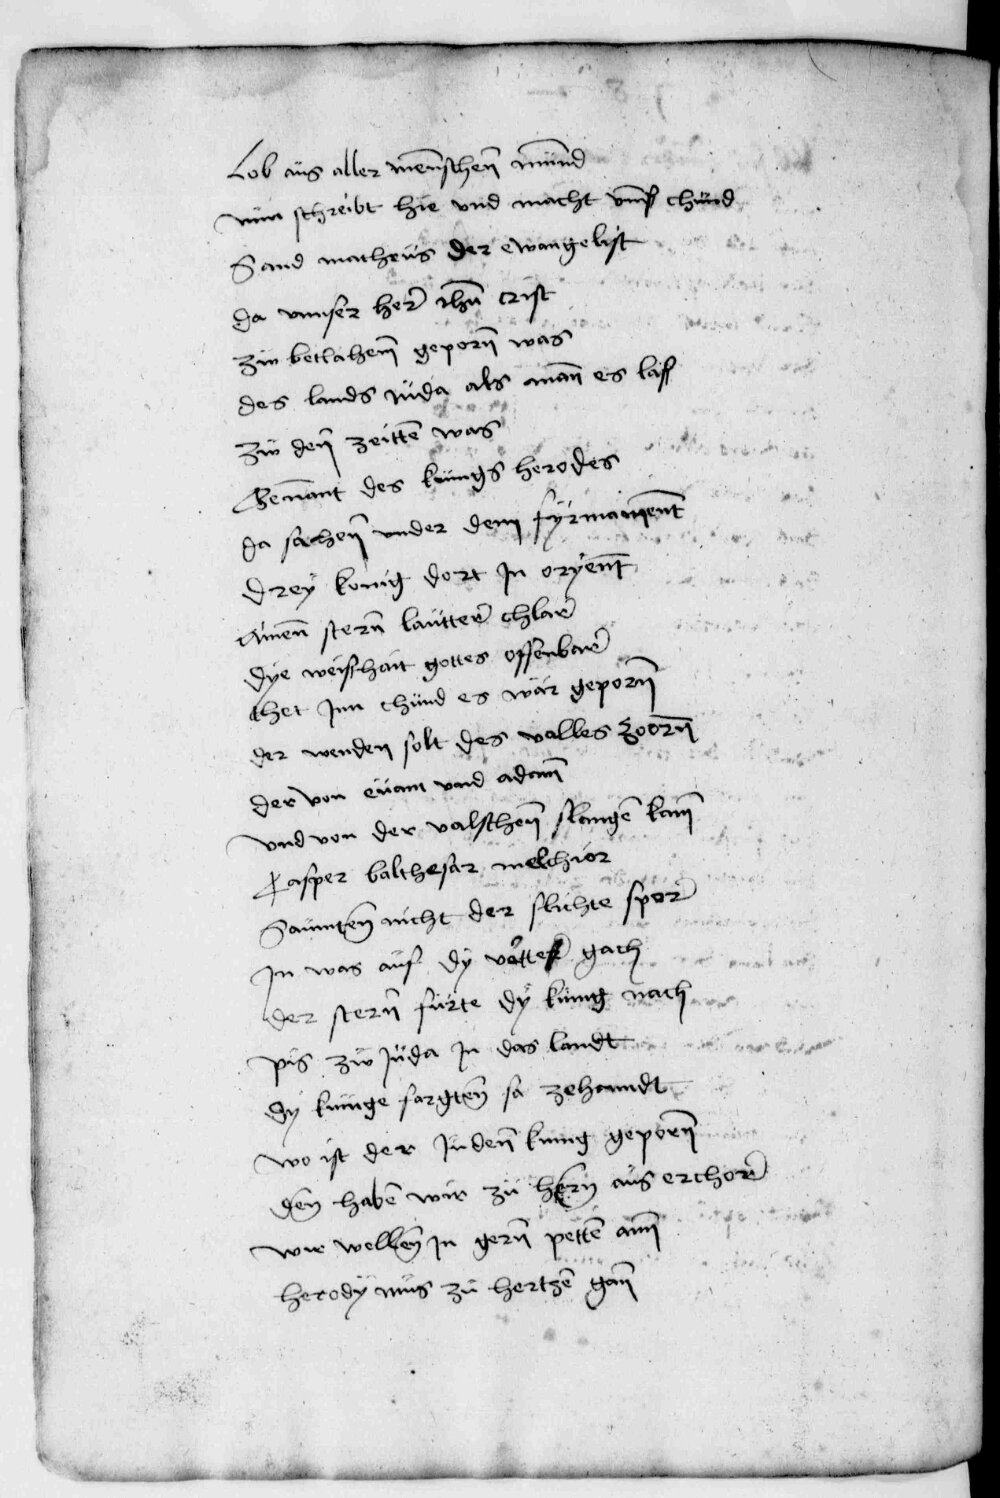 Lob aus aller mennschenn munnd
nun schreibt hie vnd macht vnnss chund
Sand matheüs der ewangelist
da vnnser her ihu crist
zw betlahenn geporn was
des lands Juda als mann es lass
zw denn zeitten was
Genannt des kunigs herodes
da sachenn vnder dem fyrmamennt
Drey konig dort Jn oryennt
Ainenn sternn lautter chlar
dye weisshait gottes offenbar
thet Jnn chund es wär geporn
der wenden solt des valles zoorn
der von euam vnd adam
vnd von der valschenn slangen kam
Casper balthesar melchior
Saumten nicht der slichte spor
Jn was auf dy gach
der sternn fürte dÿ kunig nach
pis zw Juda Jn das landt
dy kunige sargten sa zehanndt
wo ist der Judenn kunig geporn
den haben wir zu hern aus erchorn
wir wellen Jn gern petten ann
herody mus zu hertzen gan